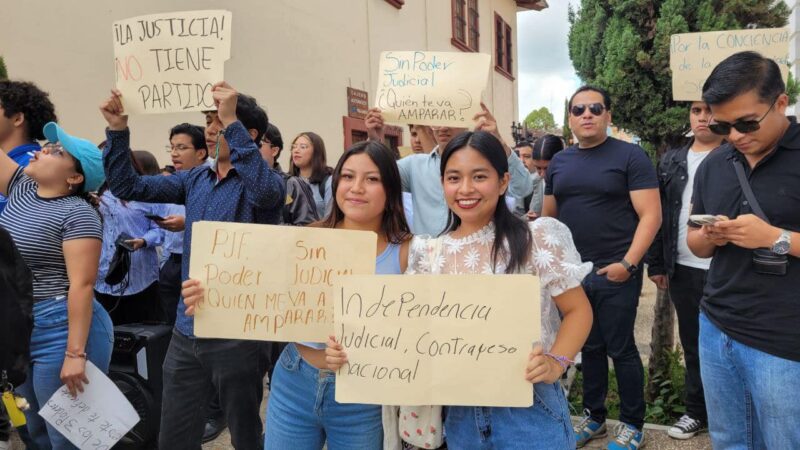 ¡LA JUSTICIA!
NO TIENE
PARTIDO
Sin Poder
Judicial
¿Quién te va
AMPARAR?
POR la CONCIE
de la
PJF. Sin
Poder JUDICIAL
¿QUIEN ME VA A
AMPARAR?
Independencia
Judicial, Contrapeso
nacional